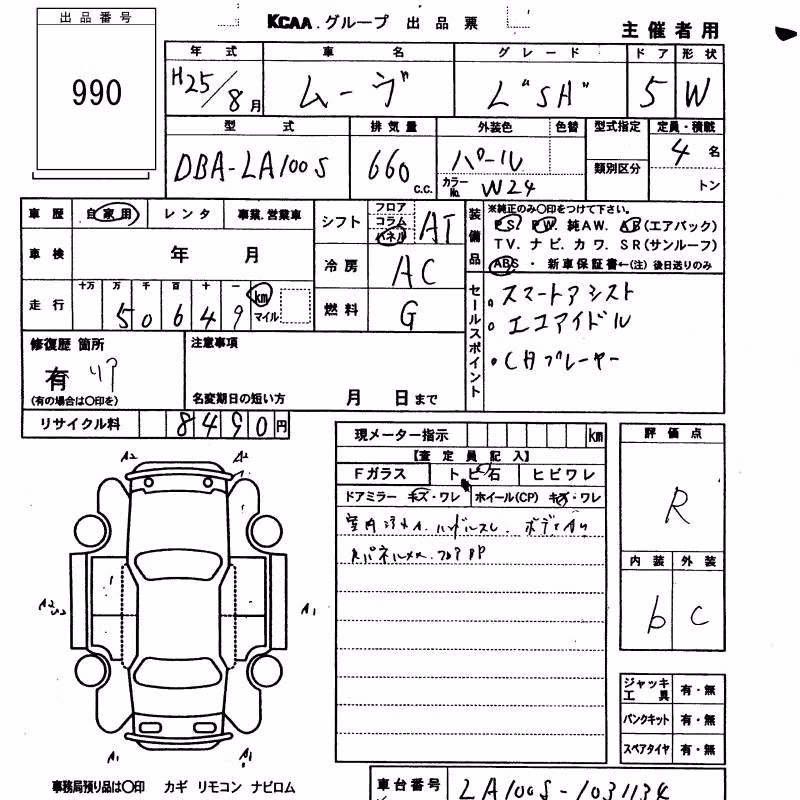 出品番号
990
KCAA.グループ 出品票
主催者用
年式 車名 グレード ドア 形状
H25/8月 ムーヴ L"SA" 5 W
型式 排気量 外装色 色替 型式指定 定員・積載
DBA-LA100S 660 c.c. パール 類別区分 4名
カラーNo. W24 トン
車歴 自家用 レンタ 事業.営業車
シフト フロア コラム パネル AT
装備品
※純正のみ〇印をつけて下さい。
PS. PW. 純AW. AB(エアバック)
TV. ナビ. カワ. SR(サンルーフ)
ABS・新車保証書←(注)後日送りのみ
車検 年 月
冷房 AC
走行 十万 万 千 百 十 一
50649 km マイル
燃料 G
セールスポイント
スマートアシスト
エコアイドル
・CDプレーヤー
修復歴 箇所
有 リア
(有の場合は〇印を)
注意事項
名変期日の短い方 月 日まで
リサイクル料 8490円
現メーター指示 km
【査定員記入】
Fガラス トビ石 ヒビワレ
ドアミラー キズ・ワレ ホイール(CP) キズ・ワレ
室内汚れ.ハンドルスレ.
評価点
R
内装 外装
b C
A2 A2
A2
A1
A1 A1
ジャッキ工具 有・無
パンクキット 有・無
スペアタイヤ 有・無
事務局預り品は〇印 カギ リモコン ナビロム
車台番号 LA100S-1031134